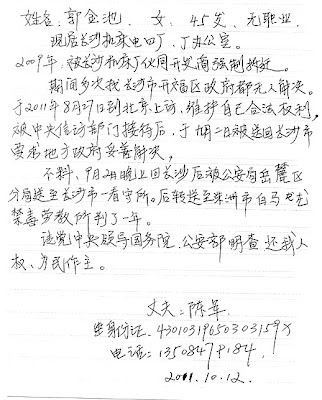 姓名：郭金池、 女： 45岁、无职业，
现居长沙机床电四厂，丁办公室。
2009年，被长沙机床厂伙同开发商强制拆迁。
期间多次找长沙市开福区政府都无人解决。
于2011年8月27日到北京上访，维护自己合法权利，
被中央信访部门接待后，于 二日被送回长沙市
要求地方政府妥善解决，
不料、9月2日晚上回长沙后被公安局岳麓区
分局送至长沙市一看守所。后转送至株洲市白马垅
劳教所判了一年。
请党中央领导国务院、公安部明查还我人
权、为民作主。
丈夫：陈军
身份证、43010319650303159X
电话：1350847 184，
2011.10.12.